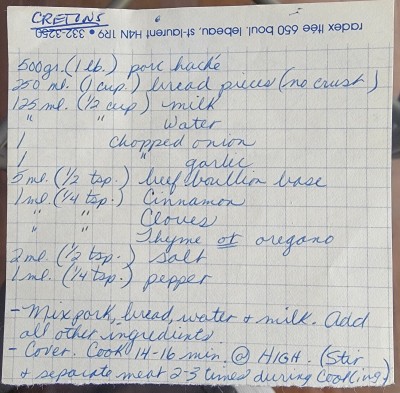 CRETONS
radex ltée 650 boul. lebeau, st-laurent H4N 1R9 • 332-3250
500gr. (1 lb.) porc haché
250 ml. (1 cup) bread pieces (no crust)
125 ml. (1/2 cup) milk
" " water
1 chopped onion
1 " garlic
5 ml. (1/2 tsp.) beef boullion base
1 ml. (1/4 tsp.) Cinnamon
" " Cloves
" " Thyme or oregano
2 ml. (1/2 tsp.) salt
1 ml. (1/4 tsp.) pepper
- Mix pork, bread, water + milk. Add
all other ingredients
- Cover. Cook 14-16 min. @ HIGH. (Stir
+ separate meat 2-3 times during cooking.)